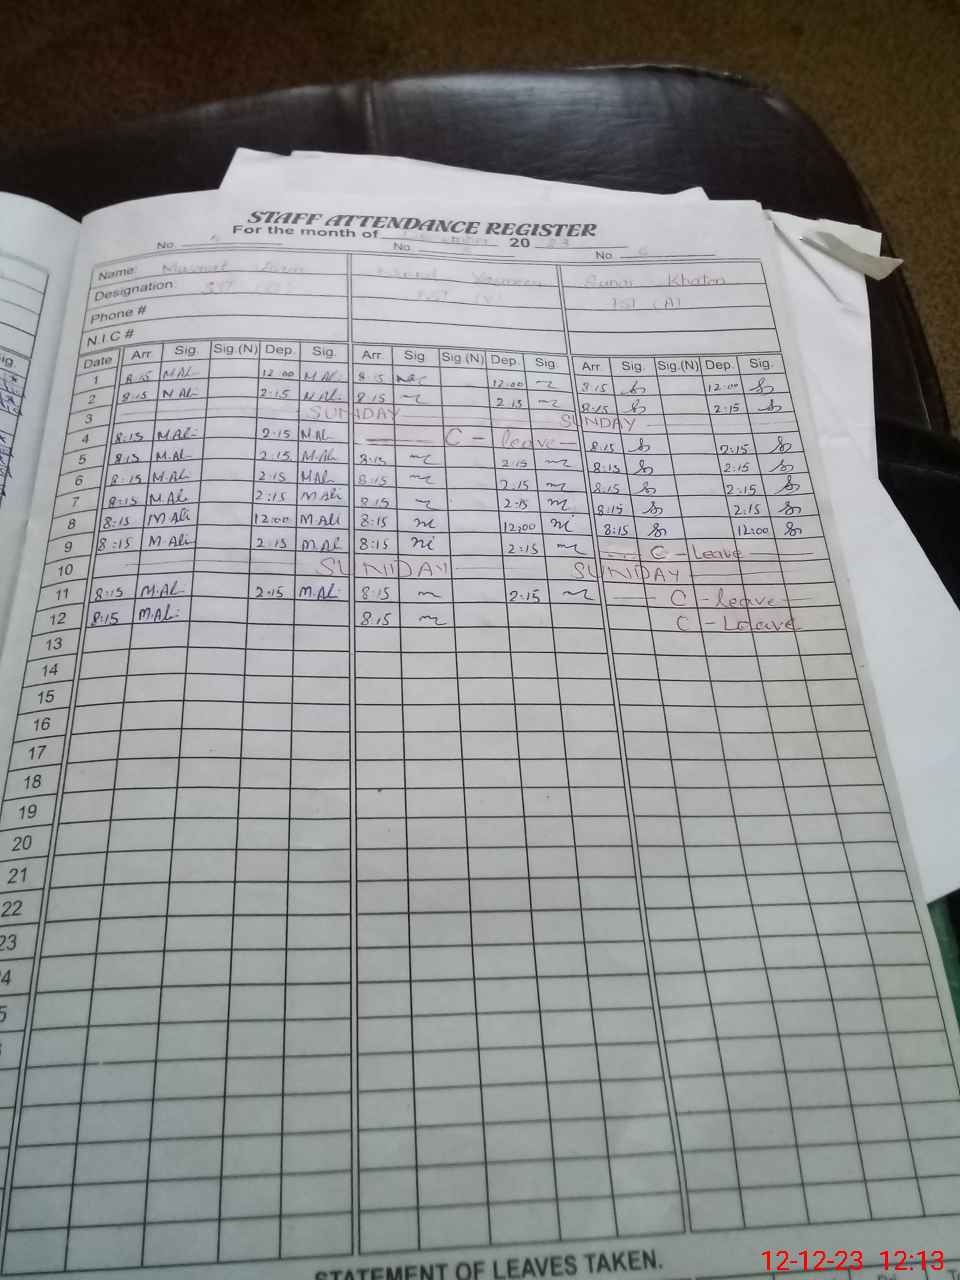 STAFF ATTENDANCE REGISTER
For the month of 2023
No. No. No. 6
Name: Khaton
Designation:
Phone #
N.I.C #
Date Arr. Sig. Sig.(N) Dep. Sig. Arr. Sig Sig.(N) Dep. Sig. Arr. Sig. Sig.(N) Dep. Sig.
1 8:15 M.Ali 12:00 M.Ali 8:15 12:00 8:15 12:00
2 8:15 M.Ali 2:15 M.Ali 8:15 2:15 8:15 2:15
3 SUNDAY SUNDAY
4 8:15 M.Ali 2:15 M.Ali C - leave 8:15 2:15
5 8:15 M.Ali 2:15 M.Ali 8:15 2:15 8:15 2:15
6 8:15 M.Ali 2:15 M.Ali 8:15 2:15 8:15 2:15
7 8:15 M.Ali 2:15 M.Ali 8:15 2:15 8:15 2:15
8 8:15 M.Ali 12:00 M.Ali 8:15 12:00 8:15 12:00
9 8:15 M.Ali 2:15 M.Ali 8:15 2:15 C - Leave
10 SUNDAY SUNDAY
11 8:15 M.Ali 2:15 M.Ali 8:15 2:15 C - leave
12 8:15 M.Ali 8:15 C - Leave
13
14
15
16
17
18
19
20
21
22
23
STATEMENT OF LEAVES TAKEN.
12-12-23 12:13